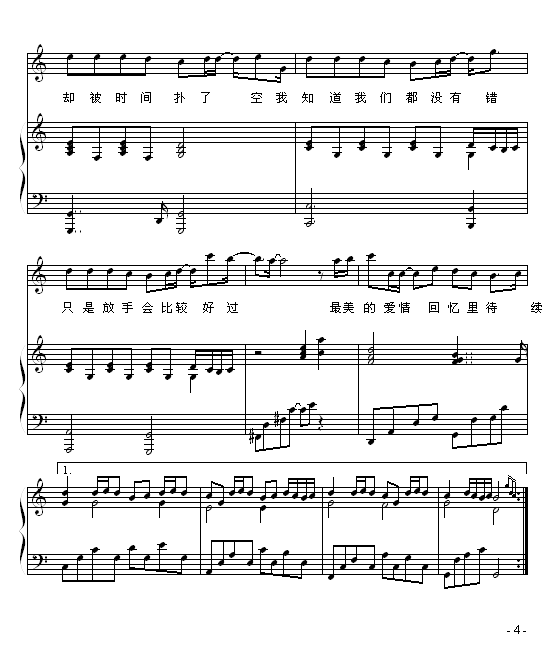 却被时间扑了 空我知道我们都没有 错
只是放手会比较 好过 最美的爱情 回忆里待 续
1.
- 4 -